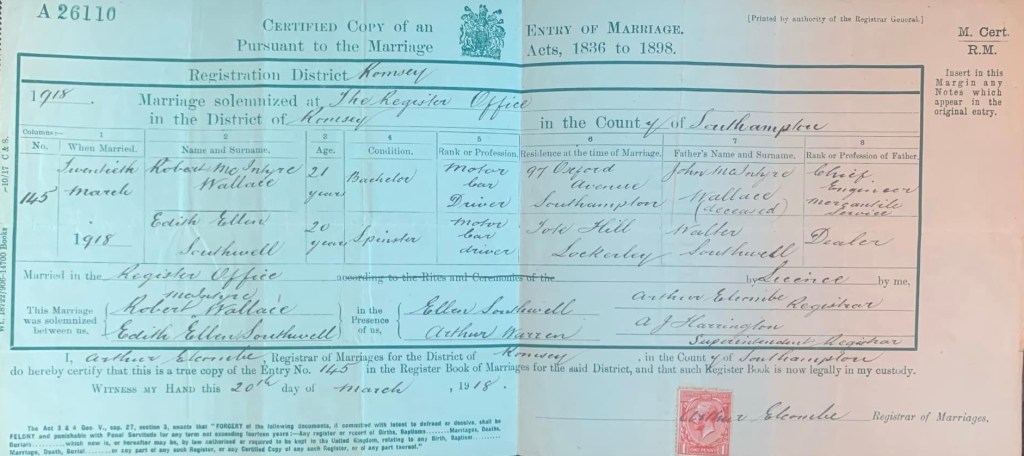 A 26110
CERTIFIED COPY OF AN ENTRY OF MARRIAGE.
[Printed by authority of the Registrar General.]
PURSUANT TO THE MARRIAGE ACTS, 1836 TO 1898.
M. Cert.
R.M.
Insert in this
Margin any
Notes which
appear in the
original entry.
Registration District Romsey
1918. Marriage solemnized at The Register Office
in the District of Romsey in the County of Southampton
Columns:— 1 2 3 4 5 6 7 8
No. When Married. Name and Surname. Age. Condition. Rank or Profession. Residence at the time of Marriage. Father's Name and Surname. Rank or Profession of Father.
145
Twentieth
March
1918
Robert McIntyre
Wallace
21
years
Bachelor
Motor
Car
Driver
97 Oxford
Avenue
Southampton
John McIntyre
Wallace
(deceased)
Chief
Engineer
Mercantile
Service
Edith Ellen
Southwell
20
years
Spinster
Motor
Car
driver
Tote Hill
Lockerley
Walter
Southwell
Dealer
Married in the Register Office according to the Rites and Ceremonies of the by Licence by me,
This Marriage
was solemnized
between us,
McIntyre
Robert Wallace
Edith Ellen Southwell
in the
Presence
of us,
Ellen Southwell
Arthur Warren
Arthur Elcombe
Registrar
A J Harrington
Superintendent Registrar
I, Arthur Elcombe, Registrar of Marriages for the District of Romsey, in the County of Southampton
do hereby certify that this is a true copy of the Entry No. 145 in the Register Book of Marriages for the said District, and that such Register Book is now legally in my custody.
WITNESS MY HAND this 20th day of March, 1918.
Arthur Elcombe Registrar of Marriages.
The Act 3 & 4 Geo. V., cap. 27, section 3, enacts that "FORGERY of the following documents, if committed with intent to defraud or deceive, shall be
FELONY and punishable with Penal Servitude for any term not exceeding fourteen years:—Any register or record of Births, Baptisms ....... Marriages, Deaths,
Burials ....... which now is, or hereafter may be, by law authorised or required to be kept in the United Kingdom, relating to any Birth, Baptism .......
Marriage, Death, Burial ....... or any part of any such Register, or any Certified Copy of any such Register, or of any part thereof."
ONE PENNY